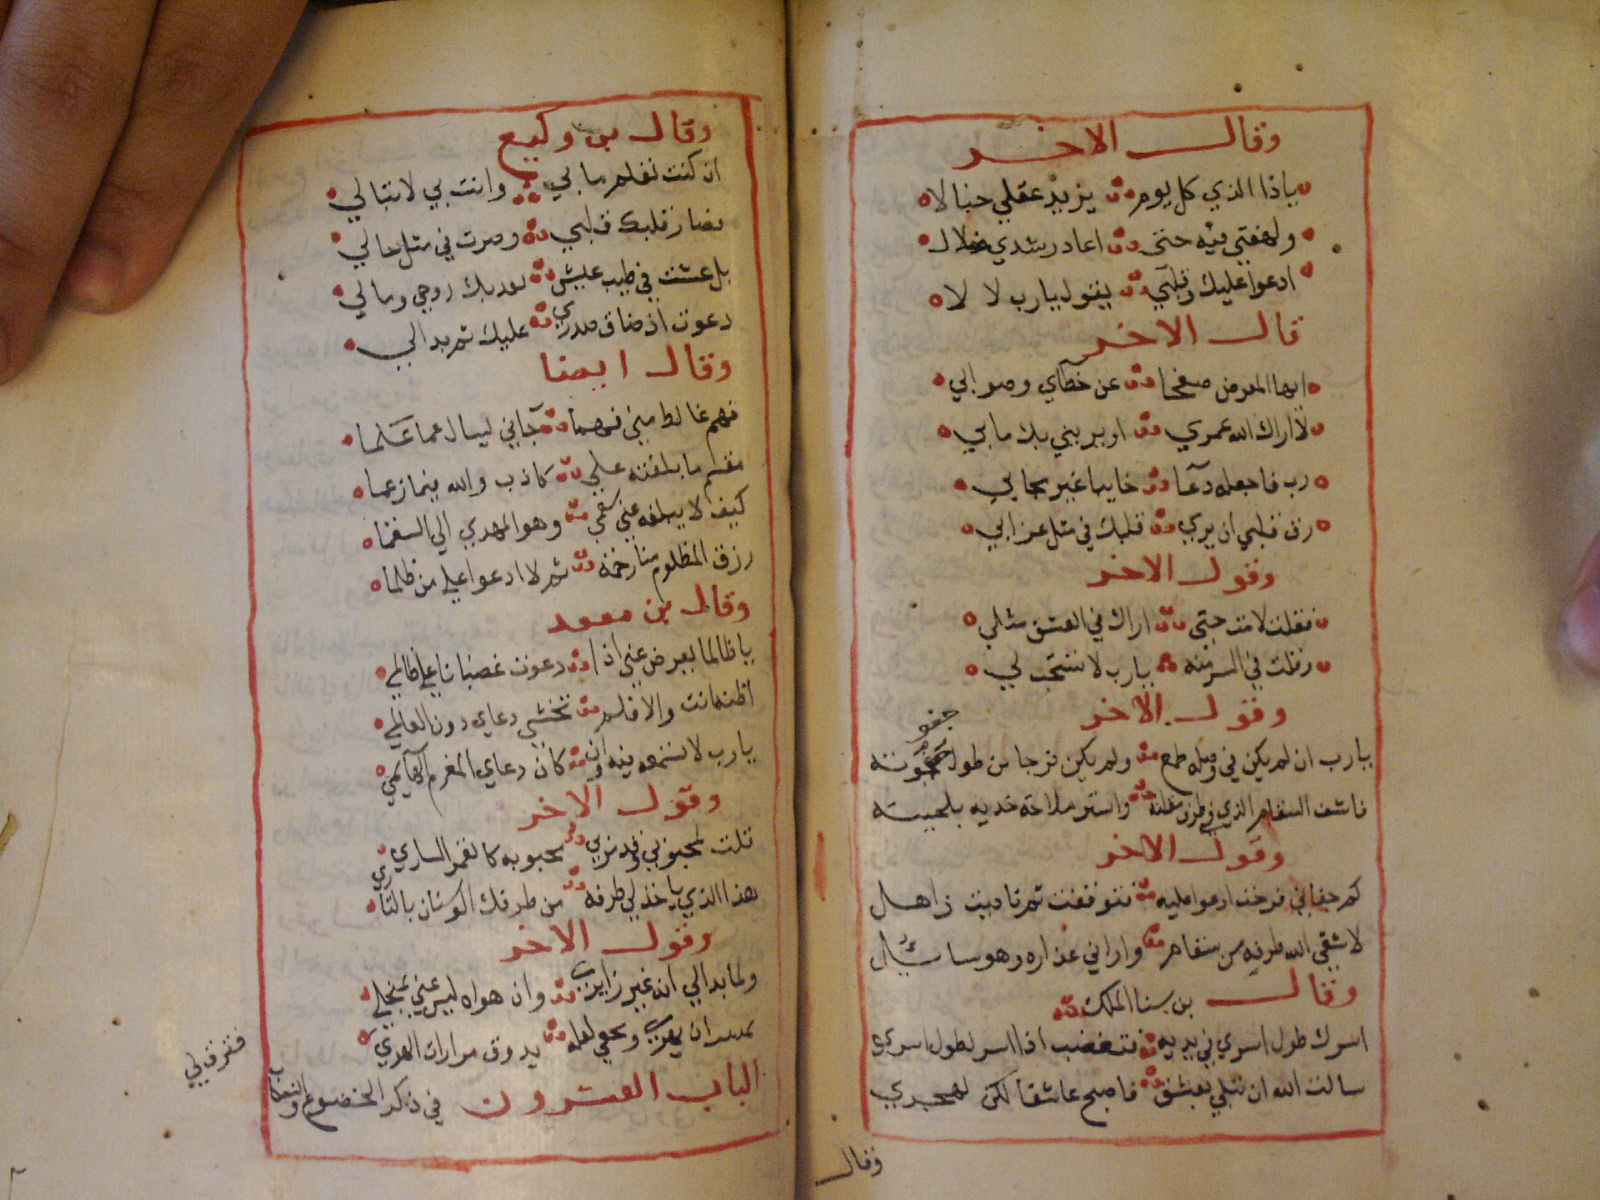 وقال الاخر
ياذا الذي كل يوم يزيد عقلي خبالا
ولهفتي فيه حتى اعاد رشدي ضلال
ادعوا عليك وقلبي يقول يارب لا لا
قال الاخر
ايها المعرض صفحا عن خطاي وصوابي
لا اراك الله عمري او يريني بك مابي
رب فاجعله دعآ خايبا غير مجابي
رق قلبي ان يري قلبك في مثل عذابي
وقول الاخر
فقلت لامت حتى اراك في العشق مثلي
وقلت في السر منه يارب لا تستجب لي
وقول الاخر
يارب ان لم يكن في وصله طمع ولم يكن فرجا من طول جفوته
فاشف السقام الذي في طرف مقلته واستر ملاحة خديه بلحيته
وقول الاخر
كم جفاني فرحت ادعوا عليه فتوقفت ثم ناديت ذاهل
لا شفي الله طرفه من سقام واراني عذاره وهو سائل
وقال بن سنا الملك
اسرك طول اسري في يديه فتغضب اذا اسر لطول اسري
سالت الله ان تبلي بعشق فاصبح عاشقا لكن لهجري
وقال
وقال بن وكيع
ان كنت تعلم مابي وانت بي لا تبالي
فصار قلبك قلبي وصرت في مثل حالي
بل عشت في طيب عيش تفديك روحي ومالي
دعوت اذ ضاق صدري عليك ثم بدالي
وقال ايضا
فهم غالط مني فهما جآني ليسال عما علما
مقسم ما بلغته علي كاذب والله فيما زعما
كيف لا يبلغه عني سقمي وهو المهدي الي السقما
رزق المظلوم منا رحمة ثم لا ادعوا علي من ظلما
وقال بن
ياظالما يعرض عني اذا دعوت غضبانا علي ظالمي
اظنك انت والا فلم تخشي دعاي دون العالم
يارب لا تسمع فيه وان كان دعاي المغرم الهآيمي
وقول الاخر
قلت لمحبوبي وقد مر بي محبوبه كالقمر الساري
هذا الذي ياخذ لي طرفه من طرفك الوسنان بالثار
وقول الاخر
ولما بدالي انه غير زايري وان هواه ليس عني بمنجلي
تمنيت ان يهوي لعله يذوق مرارات الهوي
فيرق لي
الباب العشرون في ذكر الخضوع